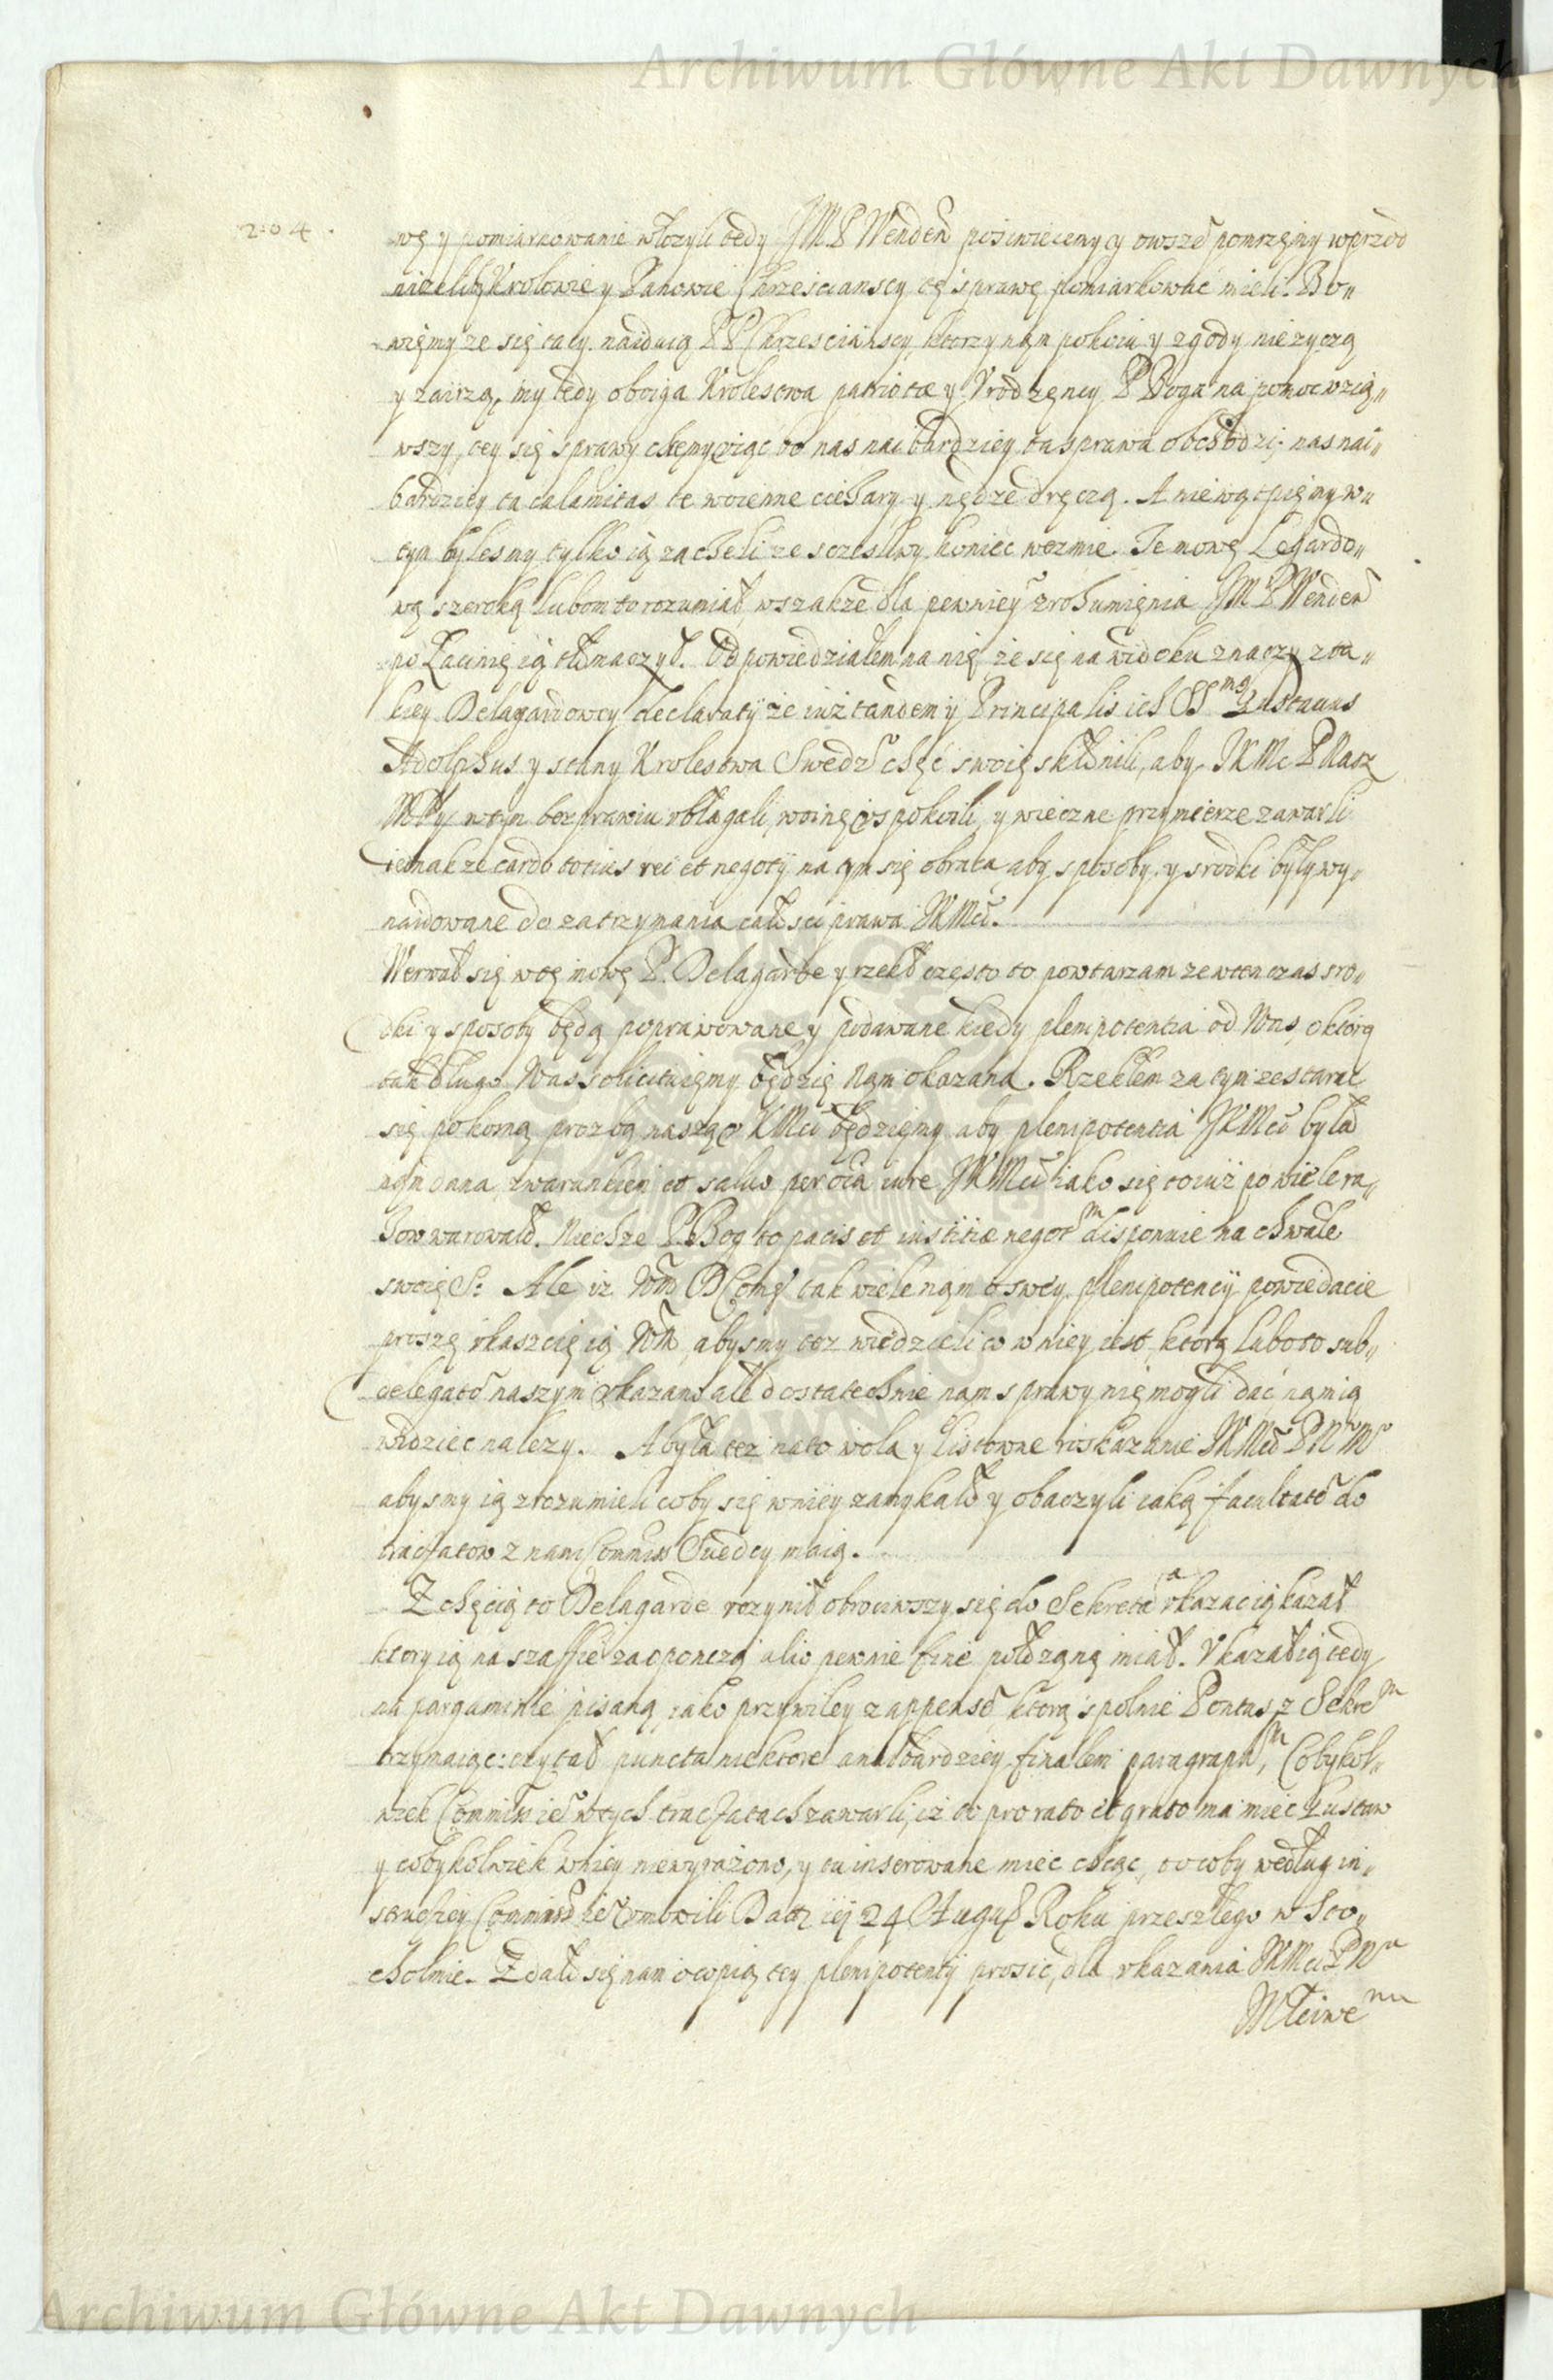 Archiwum Główne Akt Dawnych
204.
wę y pomiarkowanie włozyli tedy JMP Wenden poswiecemy y owszem pomrzemy wprzod
nizeliby Krolowie y Panowie Chrzescianscy tę sprawę pomiarkować mieli. Bo„
wiemy ze się tacy naiduią PP Chrzescianscy, ktorzy nam pokoiu y zgody nie zyczą
y zairzą, my tedy oboiga Krolestwa patriotæ y Vrodzency P Boga na pomoc wzią„
wszy, tey się sprawy chemy iąc bo nas nai bardziey ta sprawa obchodzi, nas nai„
bardziey ta calamitas te woienne ciehary y nędze dręczą. A nie wątpiemy w„
tym bylesmy tylko ią zacheli ze szczesliwy koniec wezmie. Te mowę Legardo„
wą szeroką lubom to rozumiał, wszakze dla pewniey zrohumienia JMP Wenden
po Łacinię ią tłumaczył. Odpowiedziałem na nię że się na widoku znaczy z ta„
kiey Delagardowey declaratij że iuż tandem y Principalis ich SSmg Gustauus
Adolphus y stany Krolestwa Swedz chęć swoię skłonili, aby JKMc P Nasz
MPy w tym bezprawiu vbłagali, woinę vspokoili, y wieczne przymierze zawarli
iednakze cardo totius rei et negotij na tym się obraca aby sposoby y srodki były wy„
naidowane do zatrzymania całosci prawa JKMci.
Werwał się w tę mowę P. Delagarde y rzekł często to powtarzam ze wten czas sro„
dki y sposoby będą poprawowane y podawane kiedy plenipotentia od Was, o ktorą
tak długo Was solicituiemy będzię Nam okazana. Rzekłem za tym ze starac
się pokorną prozbą naszą v KMci będziemy aby plenipotentia JKMci była
nam dana, z warunkiem et saluo per oia iure JKMci iako się to iuż po wiele ra„
zow warowało. Niechze P. Bog to pacis et iustitiæ negotm disponuie na chwałe
swoię S: Ale iz Wm DComs tak wiele nam o swey plenipotencij powiedacie
proszę vkaszcię ią Wm, abysmy tez wiedzieli co w niey iest, ktorą lubo to sub„
delegatom naszym vkazano ale dostatechnie nam sprawy nie mogli dać nam ią
widziec nalezy. A była tez na to wola y listowne roskazanie JKMci PNMo
abysmy ią zrozumieli coby się wniey zamykało y obaczyli iaką facultatem do
tractatow z nami Commiss Suedcy maią.
Z chęcią to Delagarde vczynił obrociwszy się do Sekreta vkazac ią kazał
ktory ią na szaffie za oponczą alio pewnie fine połozoną miał. Vkazał ią tedy
na pargaminie pisaną, iako przywiley z appenso, ktorą spolnie Pontus z Sekrem
trzymaiąc: czytał puncta niektore a naibardziey finalem paragraphm, Cobykol„
wiek Commiss ie w tych tractatach zawarli, iż to pro rato et grato ma miec Gustaw
y cobykolwiek wniey niewyrażono, y tu inserowane miec chcąc, to coby według in„
structiey Commiss ie vmowili Datz iey 24 August Roku przeszłego w Szto„
cholmie. Zdało się nam o copią tey plenipotentij prosic, dla vkazania JKMci PN
Młciwemu
Archiwum Główne Akt Dawnych